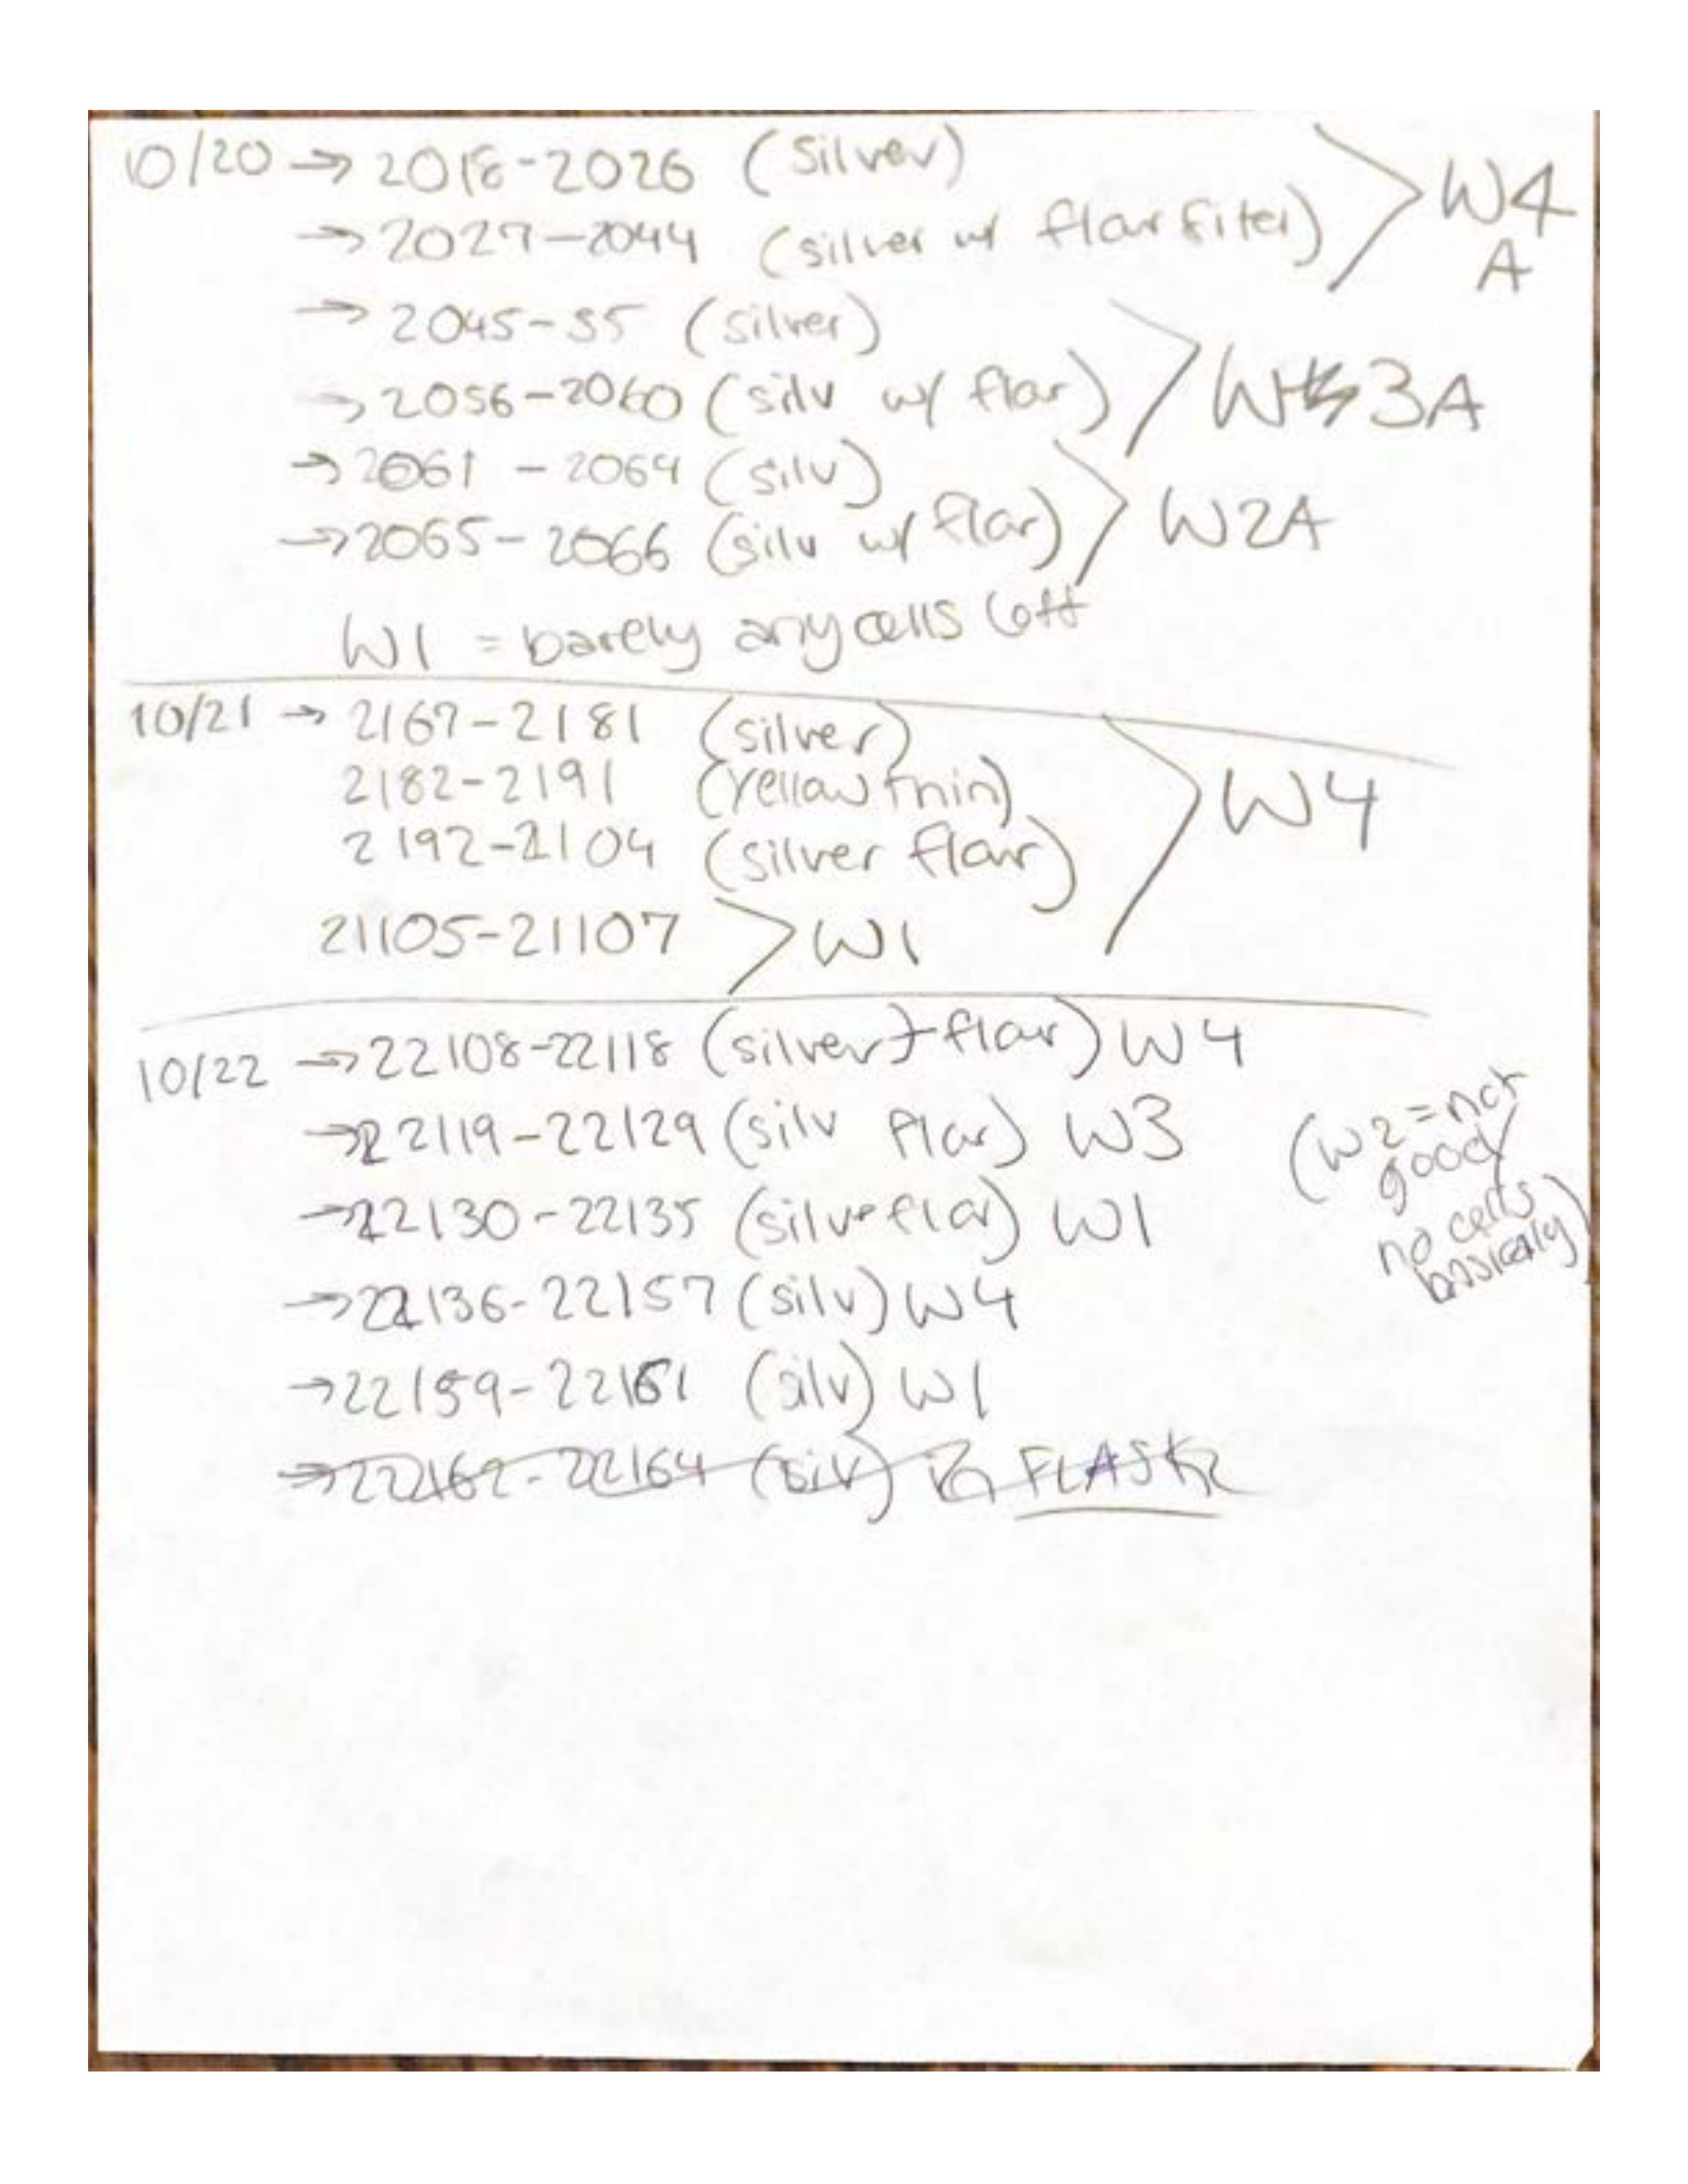 10/20 → 2018-2026 (silver)
→ 2027-2044 (silver w/ flar filter) > W4 A
→ 2045-55 (silver)
→ 2056-2060 (silv w/ flar) > W 3A
→ 2061 - 2064 (silv)
→ 2065-2066 (silv w/ flar) > W2A
W1 = barely any cells left
10/21 → 2167-2181 (silver)
2182-2191 (yellow thin) > W4
2192-2104 (silver flar)
21105-21107 > W1
10/22 → 22108-22118 (silver + flar) W4
→ 22119-22129 (silv flar) W3
(W2 = not
good/
→ 22130-22135 (silv flar) W1
no cells
basically)
→ 22136-22157 (silv) W4
→ 22159-22161 (silv) W1
→ 22162-22164 (silv) FLASK